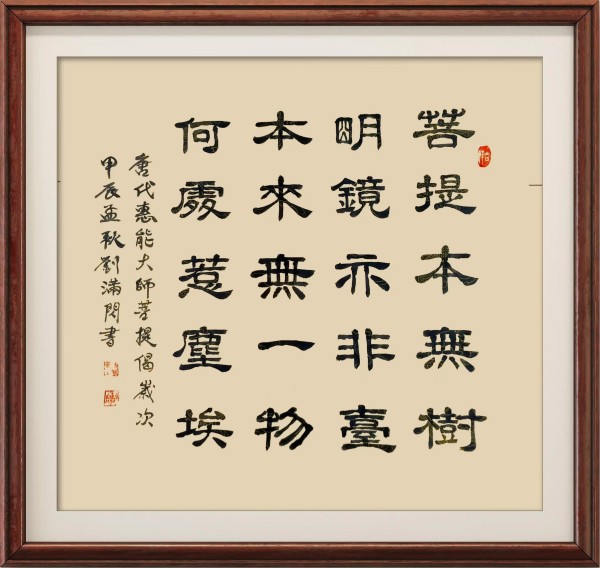 菩提本無樹
明鏡亦非臺
本來無一物
何處惹塵埃
唐代惠能大師菩提偈歲次
甲辰孟秋劉滿閣書